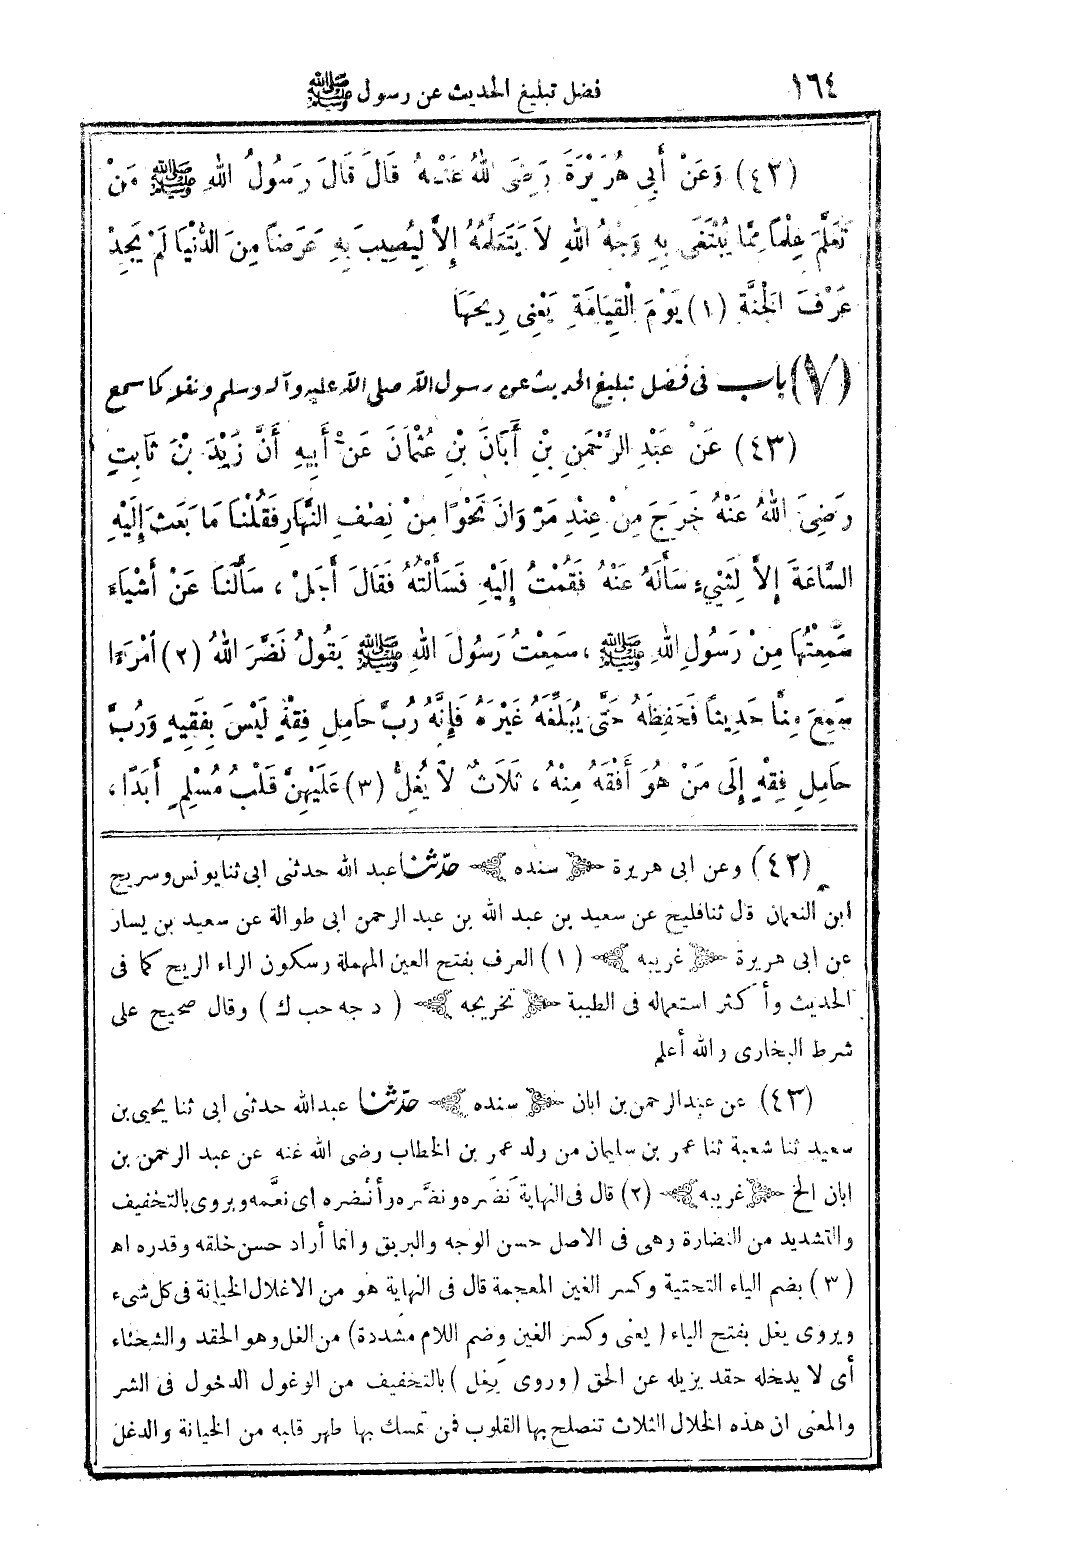 ١٦٤ فضل تبليغ الحديث عن رسول ﷺ
(٤٢) وَعَنْ أَبِي هُرَيْرَةَ رَضِيَ اللهُ عَنْهُ قَالَ قَالَ رَسُولُ اللهِ ﷺ مَنْ
تَعَلَّمَ عِلْمًا مِمَّا يُبْتَغَى بِهِ وَجْهُ اللهِ لاَ يَتَعَلَّمُهُ إِلاَّ لِيُصِيبَ بِهِ عَرَضًا مِنَ الدُّنْيَا لَمْ يَجِدْ
عَرْفَ الْجَنَّةِ (١) يَوْمَ الْقِيَامَةِ يَعْنِى رِيحَهَا
(٧) باب فى فضل تبليغ الحديث عن رسول الله صلى الله عليه وآله وسلم ونقله كما سمع
(٤٣) عَنْ عَبْدِ الرَّحْمَنِ بْنِ أَبَانَ بْنِ عُثْمَانَ عَنْ أَبِيهِ أَنَّ زَيْدَ بْنَ ثَابِتٍ
رَضِيَ اللهُ عَنْهُ خَرَجَ مِنْ عِنْدِ مَرْوَانَ نَحْوًا مِنْ نِصْفِ النَّهَارِ فَقُلْنَا مَا بَعَثَ إِلَيْهِ
السَّاعَةَ إِلاَّ لِشَيْءٍ سَأَلَهُ عَنْهُ فَقُمْتُ إِلَيْهِ فَسَأَلْتُهُ فَقَالَ أَجَلْ ، سَأَلَنَا عَنْ أَشْيَاءَ
سَمِعْتُهَا مِنْ رَسُولِ اللهِ ﷺ ، سَمِعْتُ رَسُولَ اللهِ ﷺ يَقُولُ نَضَّرَ اللهُ (٢) أمْرَءًا
سَمِعَ مِنَّا حَدِيثاً فَحَفِظَهُ حَتَّى يُبَلِّغَهُ غَيْرَهُ فَإِنَّهُ رُبَّ حَامِلِ فِقْهٍ لَيْسَ بِفَقِيهٍ وَرُبَّ
حَامِلِ فِقْهٍ إِلَى مَنْ هُوَ أَفْقَهُ مِنْهُ ، ثَلَاثٌ لاَ يُغِلُّ (٣) عَلَيْهِنَّ قَلْبُ مُسْلِمٍ أَبَدًا ،
(٤٢) وعن ابى هريرة ﴿ سنده ﴾ حدّثنا عبد الله حدثنى ابى ثنا يونس وسريج
ابن النعمان قال ثنا فليح عن سعيد بن عبد الله بن عبد الرحمن ابى طوالة عن سعيد بن يسار
عن ابى هريرة ﴿ غريبه ﴾ (١) العرف بفتح العين المهملة وسكون الراء الريح كما فى
الحديث وأكثر استعماله فى الطيبة ﴿ تخريجه ﴾ ( د جه حب ك ) وقال صحيح على
شرط البخارى والله أعلم
(٤٣) عن عبد الرحمن بن ابان ﴿ سنده ﴾ حدّثنا عبد الله حدثنى ابى ثنا يحيى بن
سعيد ثنا شعبة ثنا عمر بن سليمان من ولد عمر بن الخطاب رضى الله عنه عن عبد الرحمن بن
ابان الخ ﴿ غريبه ﴾ (٢) قال فى النهاية نضَره ونضَّره وأنضره اى نعَّمه ويروى بالتخفيف
والتشديد من النضارة وهى فى الاصل حسن الوجه والبريق وانما أراد حسن خلقه وقدره اه
(٣) بضم الياء التحتية وكسر الغين المعجمة قال فى النهاية هو من الاغلال الخيانة فى كل شىء
ويروى يغل بفتح الياء ( يعنى وكسر الغين وضم اللام مشددة) من الغل وهو الحقد والشحناء
أى لا يدخله حقد يزيله عن الحق ( وروى يَغِل ) بالتخفيف من الوغول الدخول فى الشر
والمعنى ان هذه الخلال الثلاث تنصلح بها القلوب فمن تمسك بها طهر قلبه من الخيانة والدغل